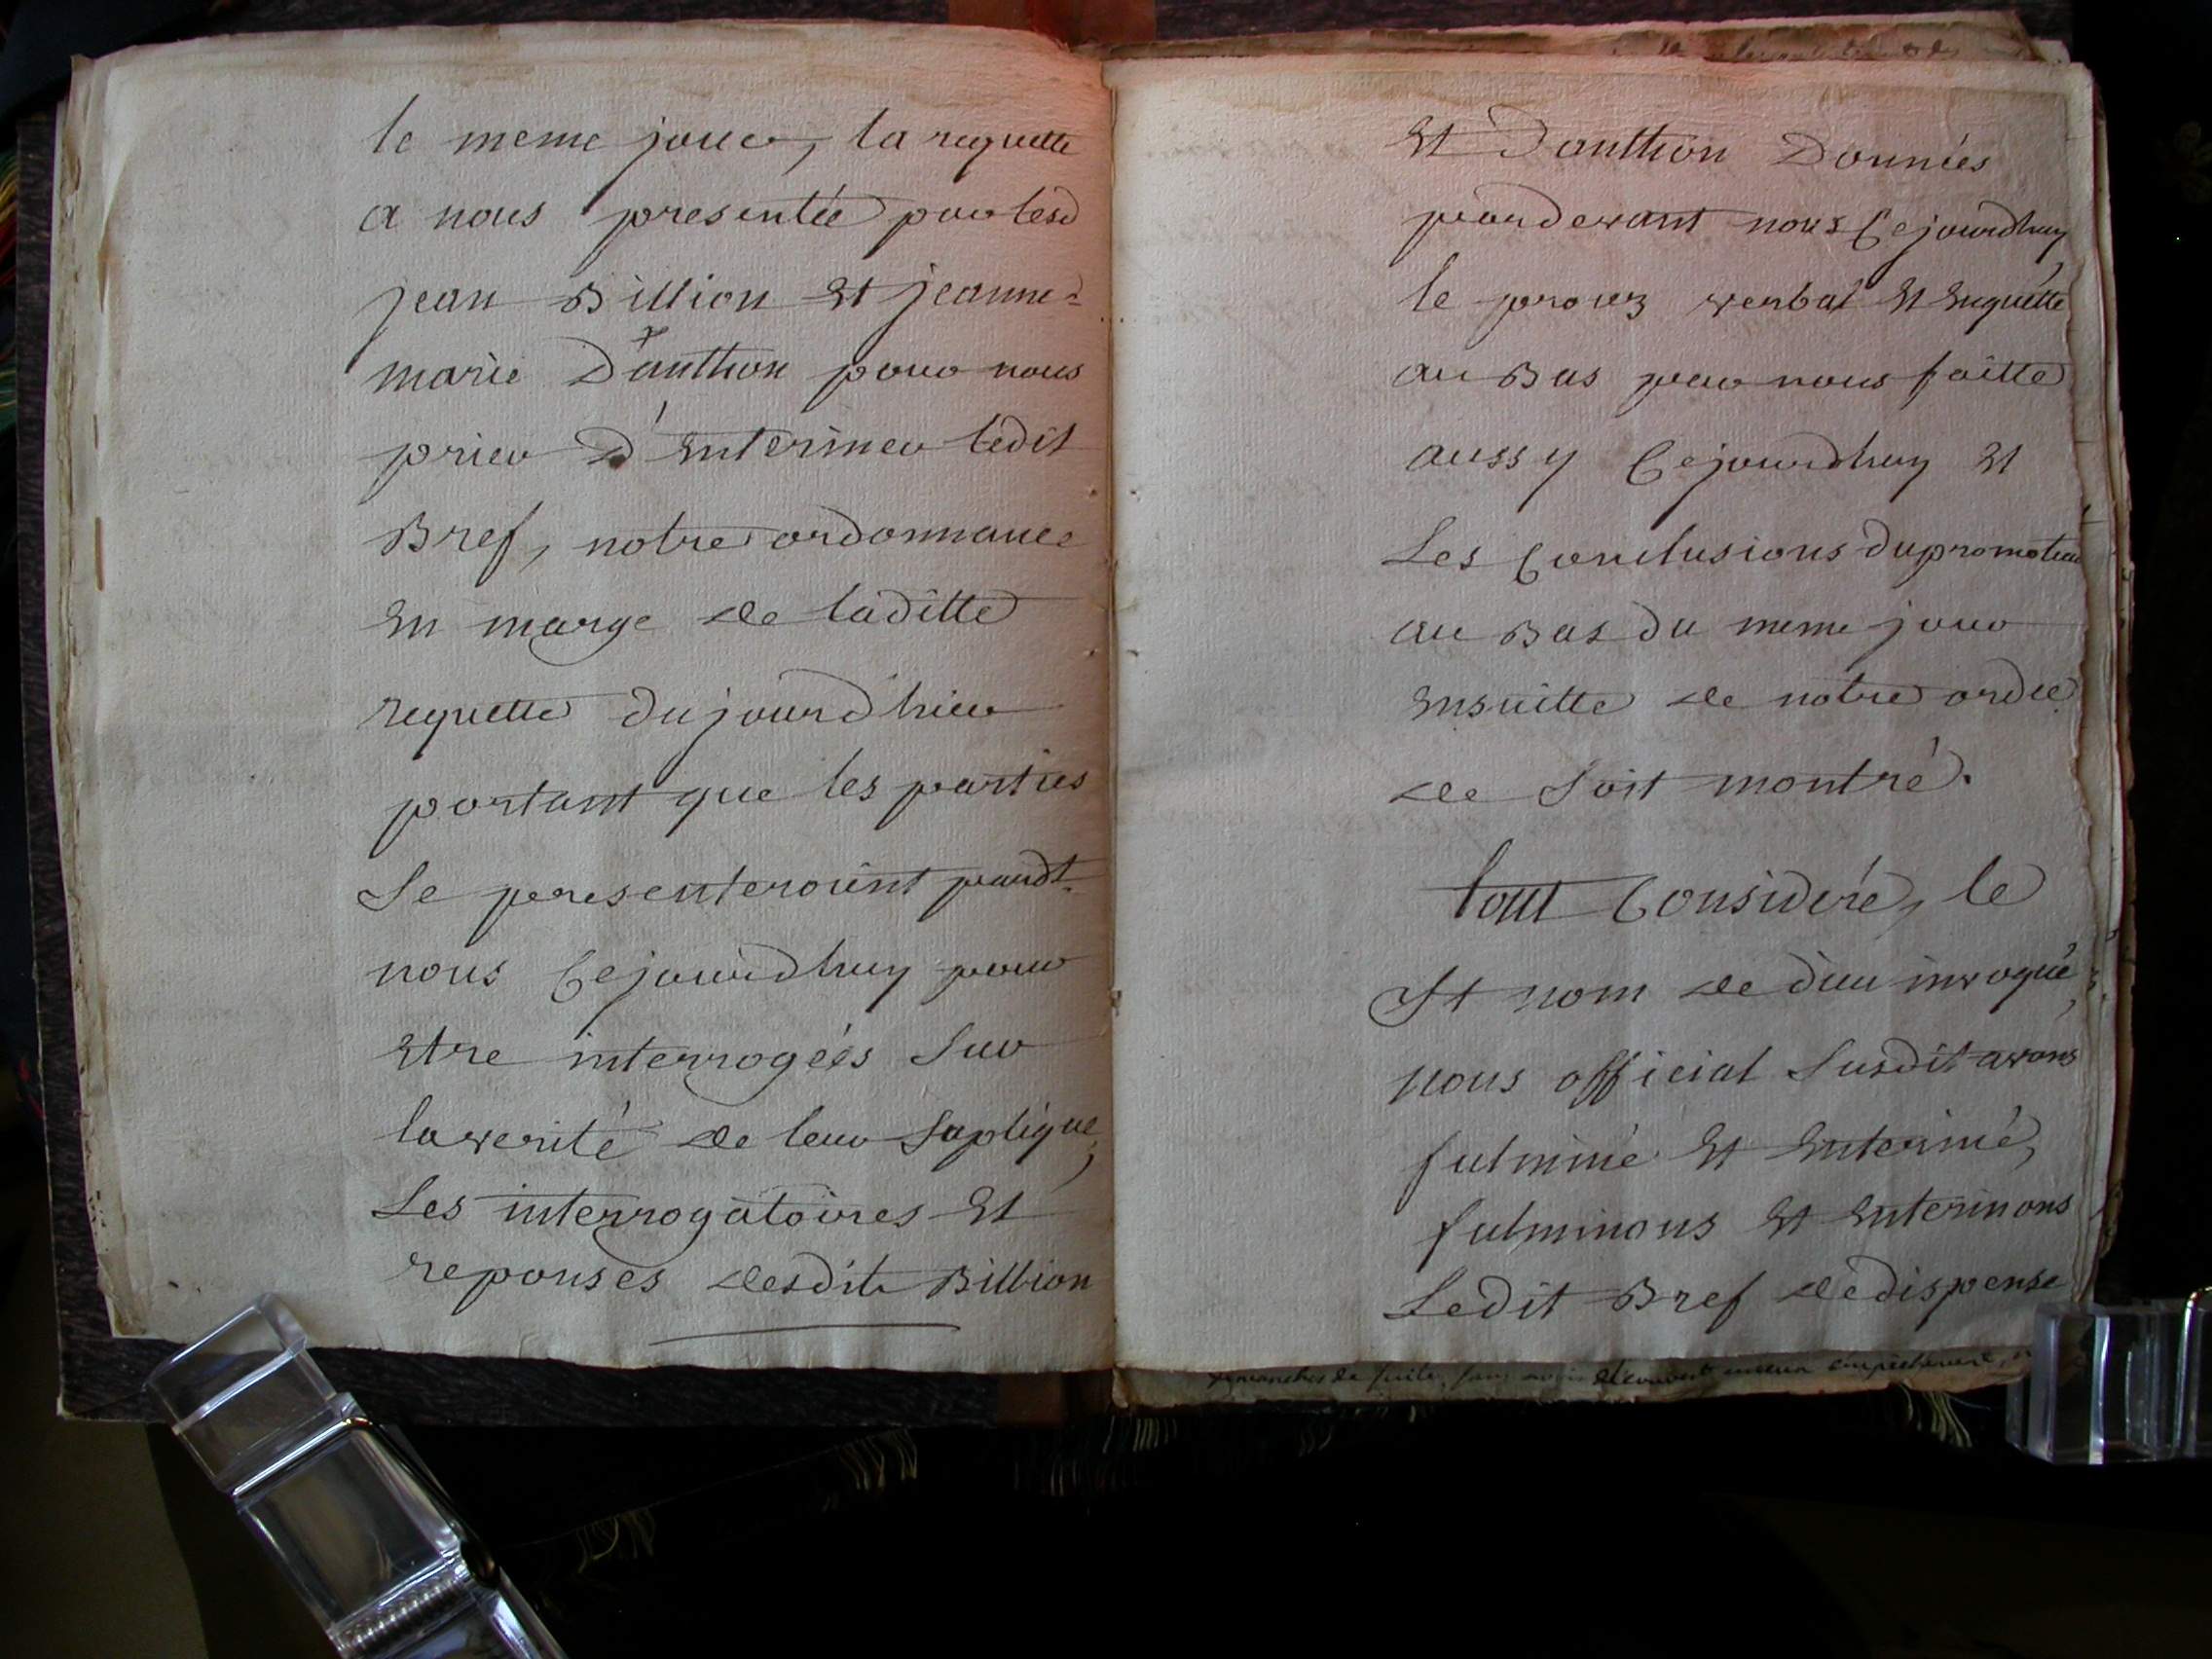 le meme jour, la requette
a nous presentée par lesd
jean Billion et jeanne=
marie Danthon pour nous
prier d'enteriner ledit
Bref, notre ordonnance
en marge de laditte
requette du jourd'hier
portant que les parties
se presenteroint pardt.
nous cejourdhuy pour
etre interrogées sur
la verité de leur suplique;
Les interrogatoires et
reponses desdits Billion
et Danthon Données
pardevant nous cejourdhuy,
le procez verbal et enquette
au Bas par nous faitte
aussy cejourdhuy et
Les conclusions du promoteur
au Bas du meme jour
ensuitte de notre ordce
de soit montré.
tout consideré, le
St nom de dieu invoqué,
nous official susdit avons
fulminé et enteriné,
fulminons et enterinons
Ledit Bref de dispense
dimanches de suite, sans avoir découvert aucun empêchement,